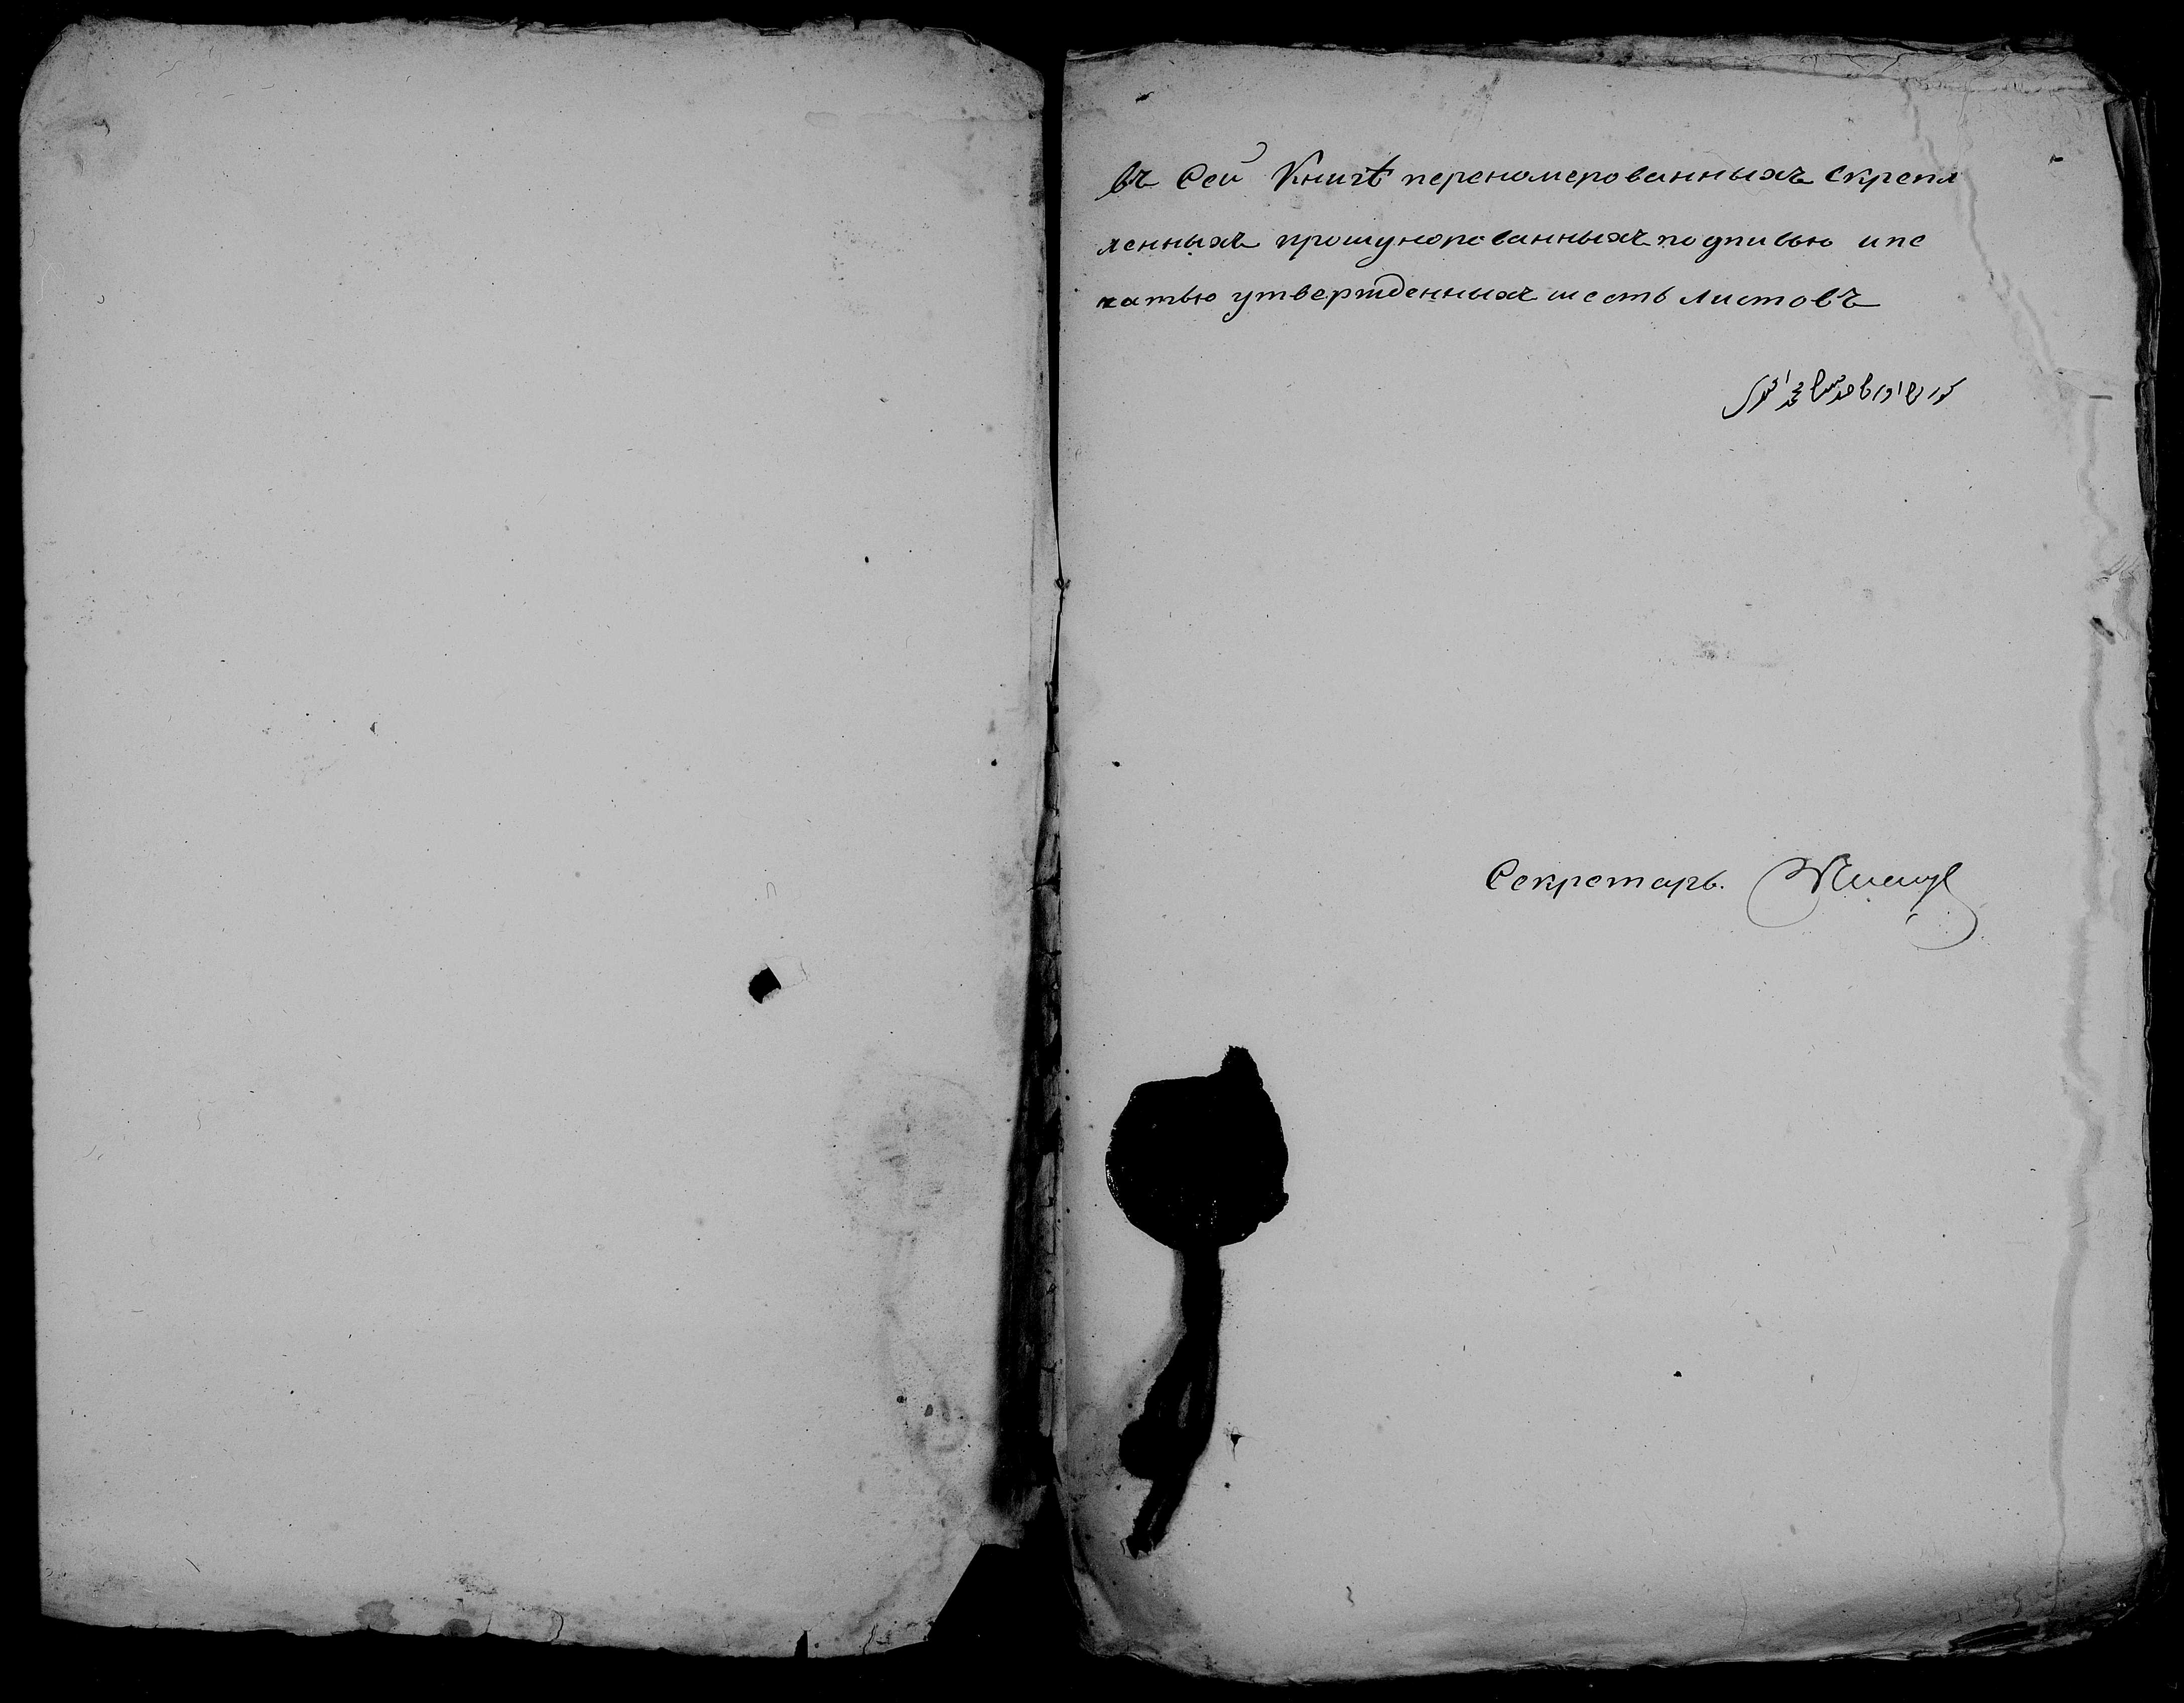 въ Сей Книгѣ переномерованныхъ скрепл
ленныхъ прошунорованныхъ подписью и пе
чатью утвержденныхъ шесть листовъ
Секретарь.